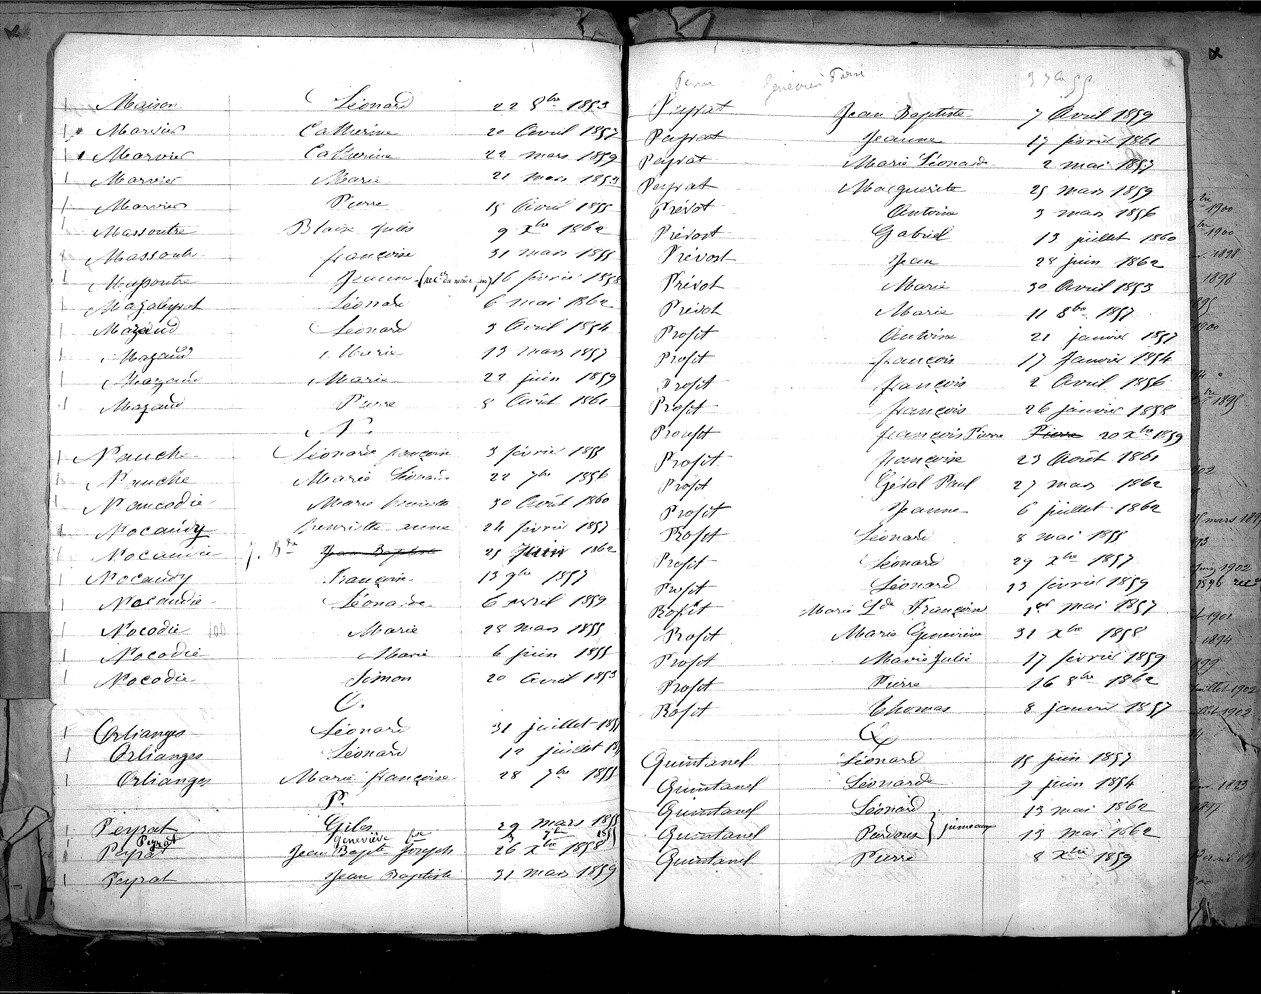 Maison Léonard 22 8bre 1853
Marvier Catherine 20 Avril 1857
Marvier Catherine 22 mars 1859
Marvier Marie 21 mars 1854
Marvier Pierre 15 Avril 1855
Massoutre Blaise Jules 9 Xbre 1862
Massoutre françoise 31 mars 1855
Jeanne 16 février 1858
Mazaleyrat Léonard 6 mai 1862
Mazaud Léonard 3 Avril 1854
Mazaud Marie 13 mars 1857
Mazaud Marie 22 juin 1859
Mazaud Pierre 8 Août 1861
N.
Nauche Léonarde françoise 3 février 1855
Nauche Marie Léonarde 22 7bre 1856
Naucodie Marie 30 Août 1860
Nocaudy henriette anne 24 février 1857
Nocaudie J. Bte Jean Baptiste 25 Juin 1862
Nocaudy françoise 13 9bre 1857
Nocaudie Léonarde 6 avril 1859
Nocodie Marie 28 mars 1855
Nocodie Marie 6 juin 1855
Nocodie Simon 20 Avril 1853
O.
Orlianges Léonard 31 juillet
Orlianges Léonard 12 juillet
Orlianges Marie françoise 28 7bre 1855
P.
Peyrat Giles 29 mars 1855
Peyrat Geneviève 3 7bre 1855
Peyrat Jean Bapte Joseph 26 Xbre 1858
Peyrat Jean Baptiste 31 mars 1859
Peyrat Jean Baptiste 7 Avril 1859
Peyrat Jeanne 17 février 1861
Peyrat Marie Léonarde 2 mai 1857
Peyrat Marguerite 25 mars 1859
Prévot Antoine 3 mars 1856
Prévost Gabriel 13 juillet 1860
Prévost Jean 28 juin 1862
Prévot Marie 30 Avril 1853
Prévot Marie 11 8bre 1857
Profit Antoine 21 janvier 1857
Profit françois 17 Janvier 1854
Profit françois 2 Avril 1856
Profit françois 26 janvier 1858
Proufit françois Pierre Pierre 20 Xbre 1859
Profit françoise 23 Août 1861
Profit Géral Paul 27 mars 1862
Profit Jeanne 6 juillet 1862
Profit Léonard 8 mai 1855
Profit Léonard 29 Xbre 1857
Profit Léonard 23 février 1859
Profit Marie Lde Françoise 1er mai 1857
Profit Marie Geneviève 31 Xbre 1858
Profit Marie Julie 17 février 1859
Profit Pierre 16 8bre 1862
Profit Thomas 8 janvier 1857
Q
Quintanel Léonard 15 juin 1857
Quintanel Léonarde 9 juin 1854
Quintanel Léonard 13 mai 1862
Quintanel Pardoux 13 mai 1862 } jumeaux
Quintanel Pierre 8 Xbre 1859